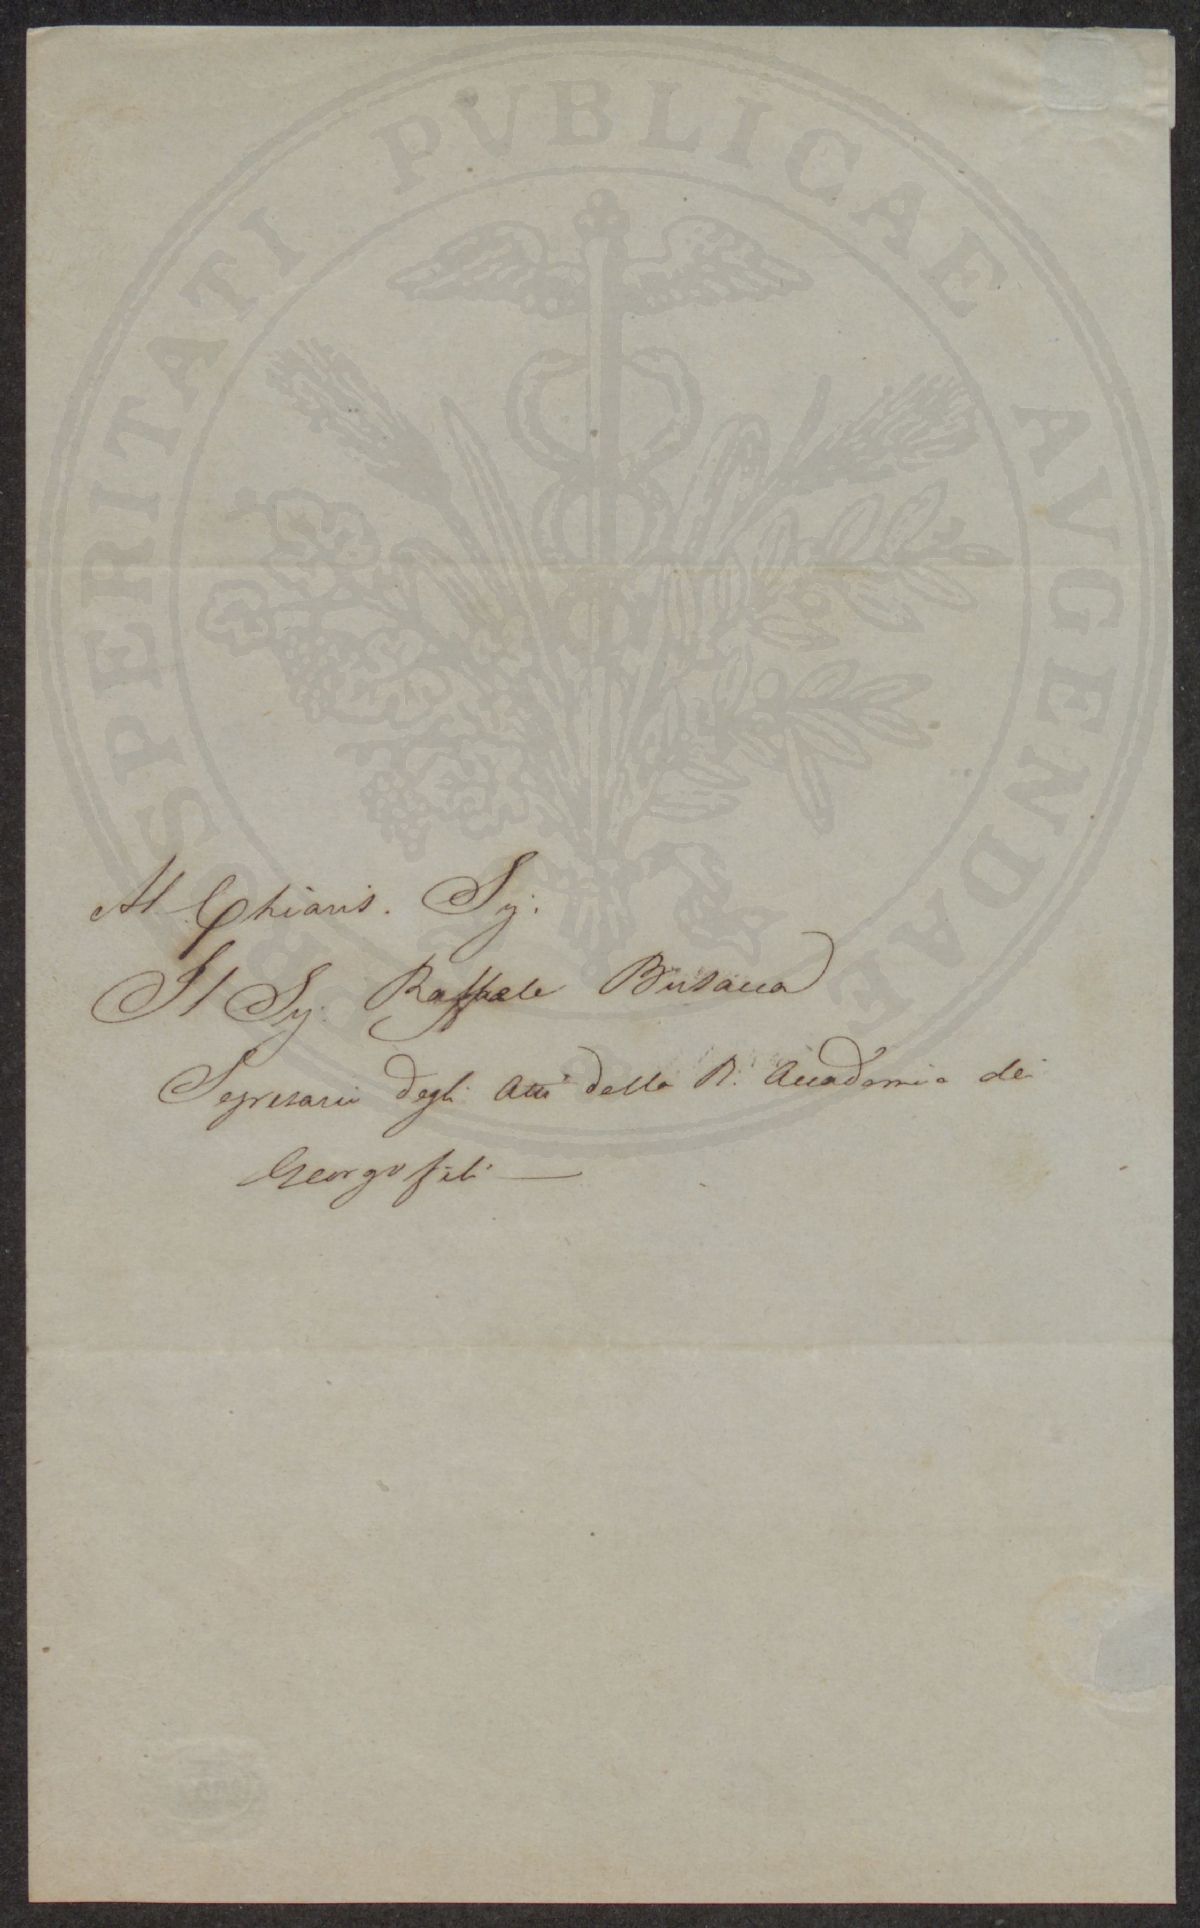 PROSPERITATI PVBLICAE AVGENDAE
Al Chiaris. Sig.
Il Sig. Raffaele Busacca
Segretario degli Atti della R. Accademia dei
Georgofili